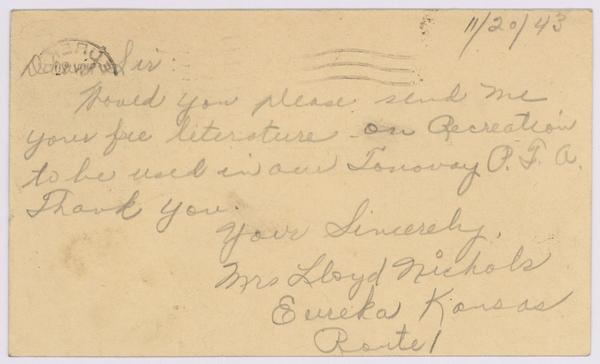 11/20/43
Dear Sir:
Would you please send me
your free literature on Recreation
to be used in our Tonovay P.T.A.
Thank You.
Your Sincerely,
Mrs Lloyd Nichols
Eureka Kansas
Route 1